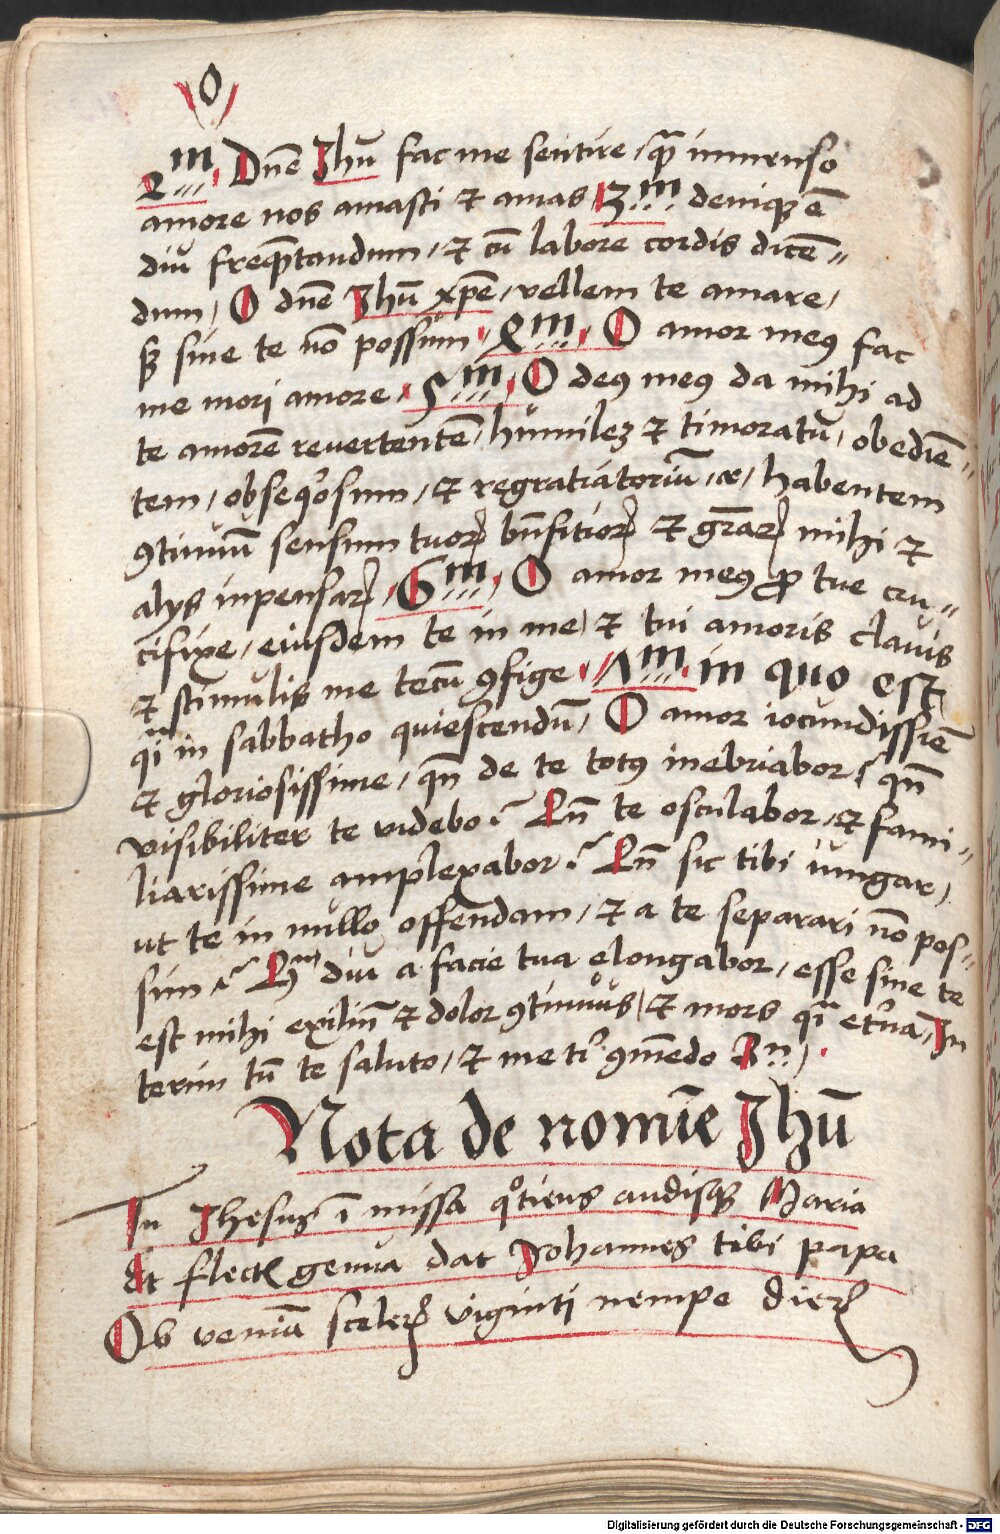 O
2m Dne Ihu fac me sentire / qua immenso
amore nos amasti et amas / 3m deniqz e
diu freqntandum / et cu labore cordis dice-
dum / O dne Ihu xpe / vellem te amare /
sz sine te no possum / 4m / O amor meus fac
me mori amore / 5m / O deus meus da mihi ad
te amore revertente / humilez et timoratu / obedie-
tem / obseqosum / et regratiatoriu / habentem
9tinuu sensum tuorum bnfitiorum et grarum mihi et
alys inpensarum / 6m / O amor meus pro tue cru-
cifixe / eiusdem te in me et tui amoris clauis
et stimulis me tecu 9fige / 7m / in quo est
qi in sabbatho quiescendu / O amor iocundissie
et gloriosissime / qn de te totus inebriabor? qn
visibiliter te videbo? Qn te osculabor / et fami-
liarissime amplexabor? Qn sic tibi iungar /
ut te in nullo offendam / et a te separari no pos-
sim? Qm diu a facie tua elongabor / esse sine te
est mihi exiliu et dolor 9tinuus / et mors qi eterna / In
terim tu te saluto / et me ti 9medo
Nota de nomie Ihu
In Ihesus i missa qotiens audisqz Maria
Et flectis genua dat Johannes tibi papa
Ob venia scelerum viginti nempe dierum
Digitalisierung gefördert durch die Deutsche Forschungsgemeinschaft - DFG